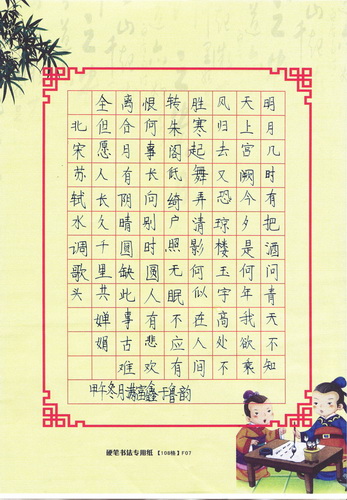 明月几时有把酒问青天不知
天上宫阙今夕是何年我欲乘
风归去又恐琼楼玉宇高处不
胜寒起舞弄清影何似在人间
转朱阁低绮户照无眠不应有
恨何事长向别时圆人有悲欢
离合月有阴晴圆缺此事古难
全但愿人长久千里共婵娟
北宋苏轼水调歌头
甲午冬月于鲁韵
硬笔书法专用纸【108格】F07